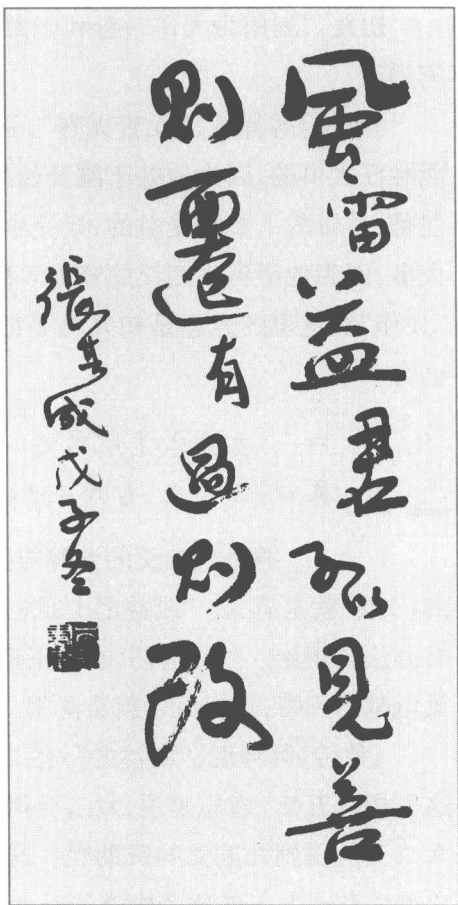 風雷益君子以見善
則遷有過則改
張其成戊子冬